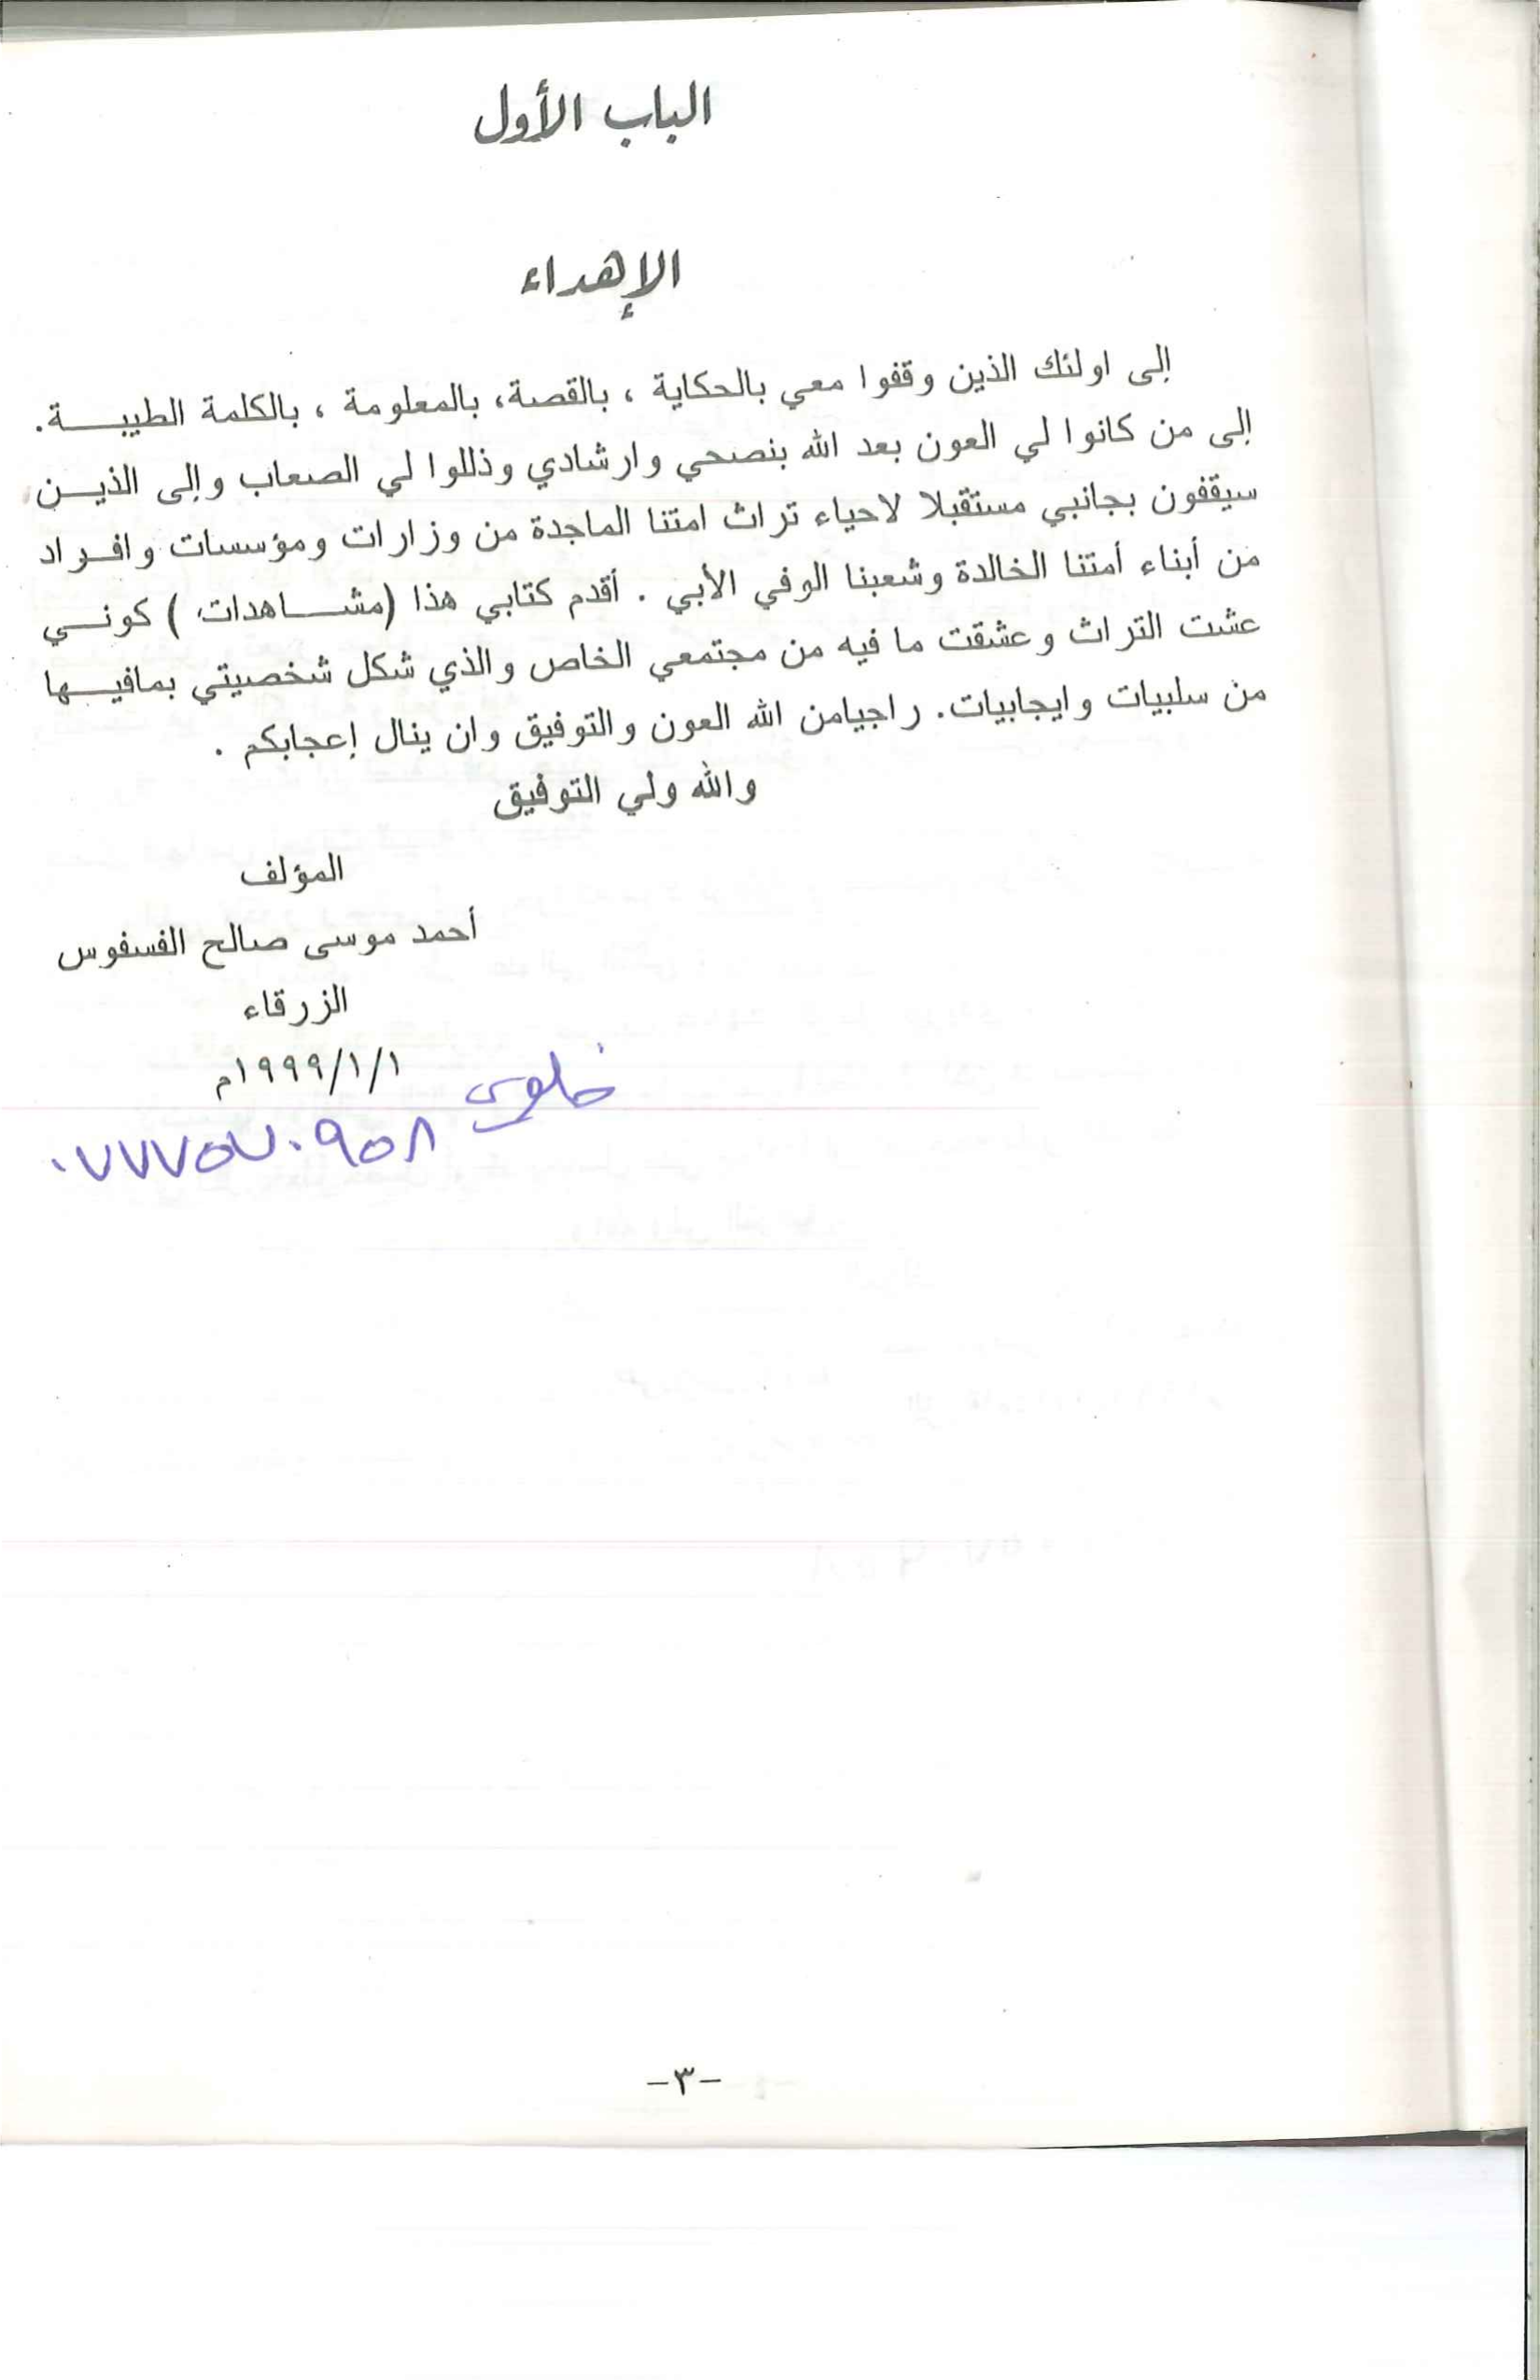 الباب الأول
الإهداء
إلى اولئك الذين وقفوا معي بالحكاية ، بالقصة، بالمعلومة ، بالكلمة الطيبة.
إلى من كانوا لي العون بعد الله بنصحي وارشادي وذللوا لي الصعاب وإلى الذين
سيقفون بجانبي مستقبلا لاحياء تراث امتنا الماجدة من وزارات ومؤسسات وافراد
من أبناء أمتنا الخالدة وشعبنا الوفي الأبي . أقدم كتابي هذا (مشاهدات ) كوني
عشت التراث وعشقت ما فيه من مجتمعي الخاص والذي شكل شخصيتي بمافيها
من سلبيات وايجابيات. راجيامن الله العون والتوفيق وان ينال إعجابكم .
والله ولي التوفيق
المؤلف
أحمد موسى صالح الفسفوس
الزرقاء
١٩٩٩/١/١م
خلوي
٠٧٧٧٥٧٠٩٥٨
-٣-